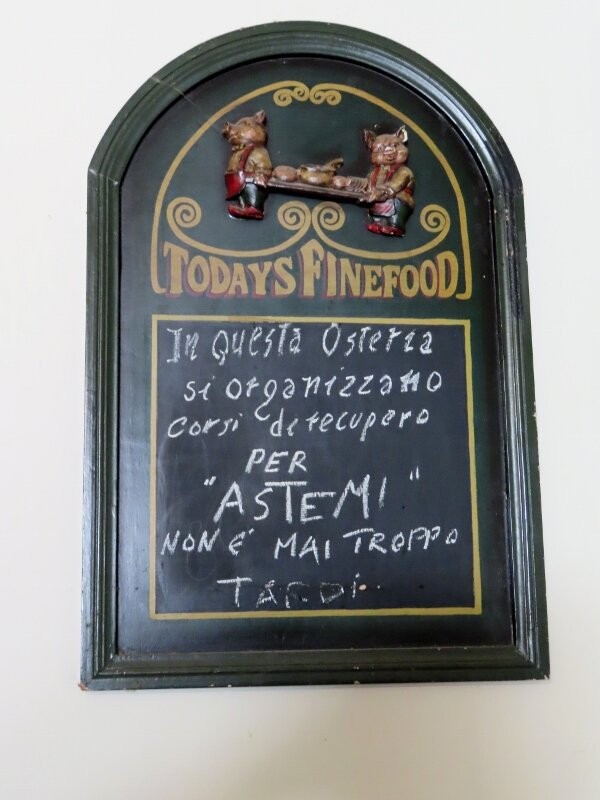 TODAYS FINEFOOD
In Questa Osteria
si organizzano
corsi di recupero
PER
"ASTEMI"
NON E' MAI TROPPO
TARDI..